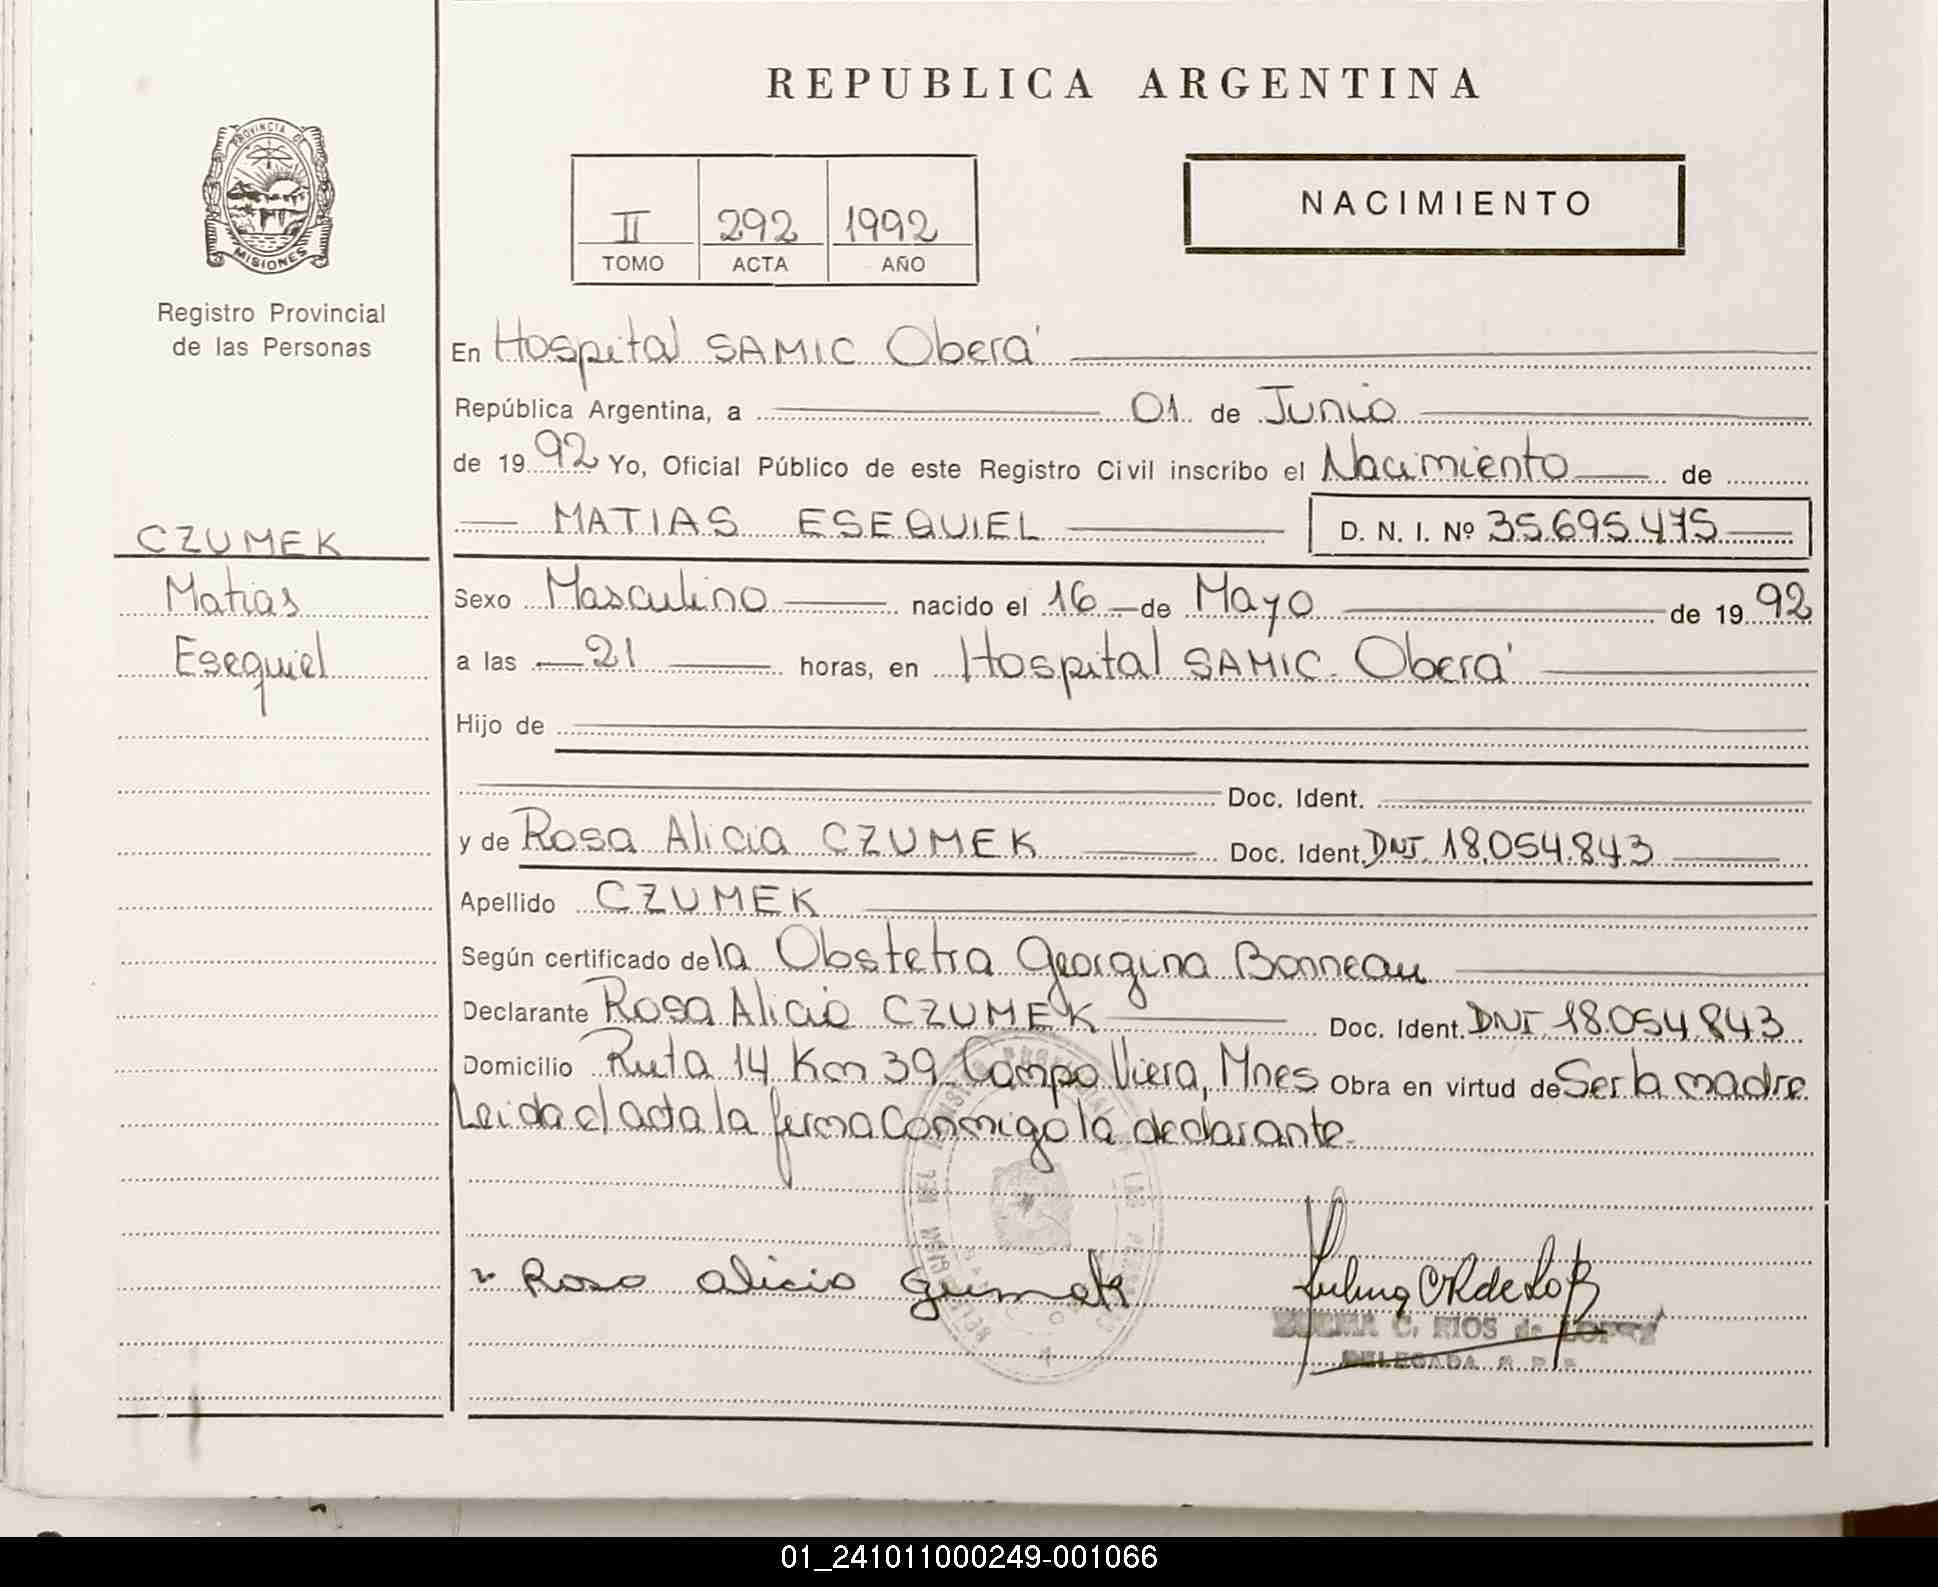 REPUBLICA ARGENTINA
PROVINCIA DE
MISIONES
Registro Provincial
de las Personas
II 292 1992
TOMO ACTA AÑO
NACIMIENTO
En Hospital SAMIC Oberá
República Argentina, a 01 de Junio
de 1992 Yo, Oficial Público de este Registro Civil inscribo el Nacimiento de
MATIAS ESEQUIEL D. N. I. Nº 35.695.475
CZUMEK
Matias
Esequiel
Sexo Masculino nacido el 16 de Mayo de 1992
a las 21 horas, en Hospital SAMIC Oberá
Hijo de
Doc. Ident.
y de Rosa Alicia CZUMEK Doc. Ident. DNI. 18.054.843
Apellido CZUMEK
Según certificado de la Obstetra Georgina Bonneau
Declarante Rosa Alicia CZUMEK Doc. Ident. DNI 18.054.843
Domicilio Ruta 14 Km 39 Campo Viera, Mnes Obra en virtud de Ser la madre
Leida el acta la firma conmigo la declarante.
Rosa Alicia
C. RIOS de LOPEZ
DELEGADA
01_241011000249-001066